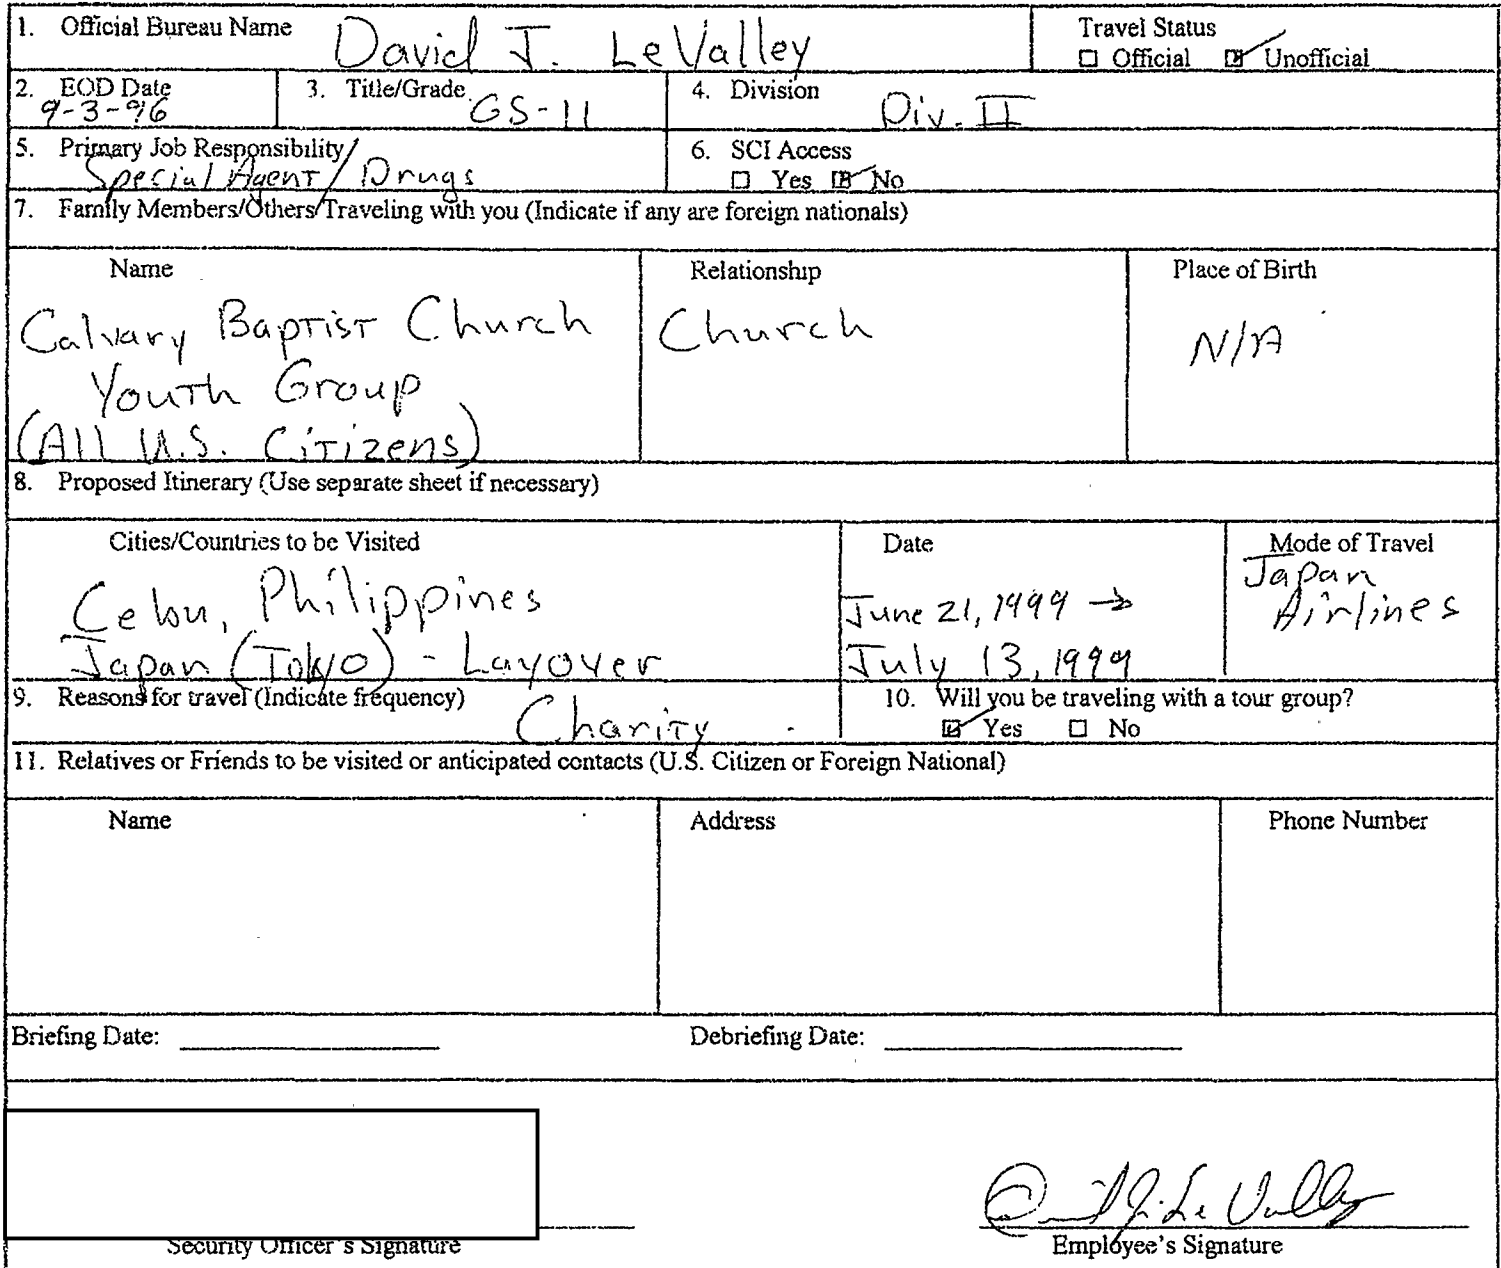 1. Official Bureau Name David J. LeValley Travel Status
Official Unofficial
2. EOD Date 3. Title/Grade 4. Division
9-3-96 GS-11 Div. II
5. Primary Job Responsibility 6. SCI Access
Special Agent/Drugs Yes No
7. Family Members/Others Traveling with you (Indicate if any are foreign nationals)
Name Relationship Place of Birth
Calvary Baptist Church Church N/A
Youth Group
(All U.S. Citizens)
8. Proposed Itinerary (Use separate sheet if necessary)
Cities/Countries to be Visited Date Mode of Travel
Cebu, Philippines June 21, 1999 → Japan Airlines
Japan (Tokyo) - Layover July 13, 1999
9. Reasons for travel (Indicate frequency) 10. Will you be traveling with a tour group?
Charity Yes No
11. Relatives or Friends to be visited or anticipated contacts (U.S. Citizen or Foreign National)
Name Address Phone Number
Briefing Date: Debriefing Date:
David J. LeValley
Security Officer's Signature Employee's Signature